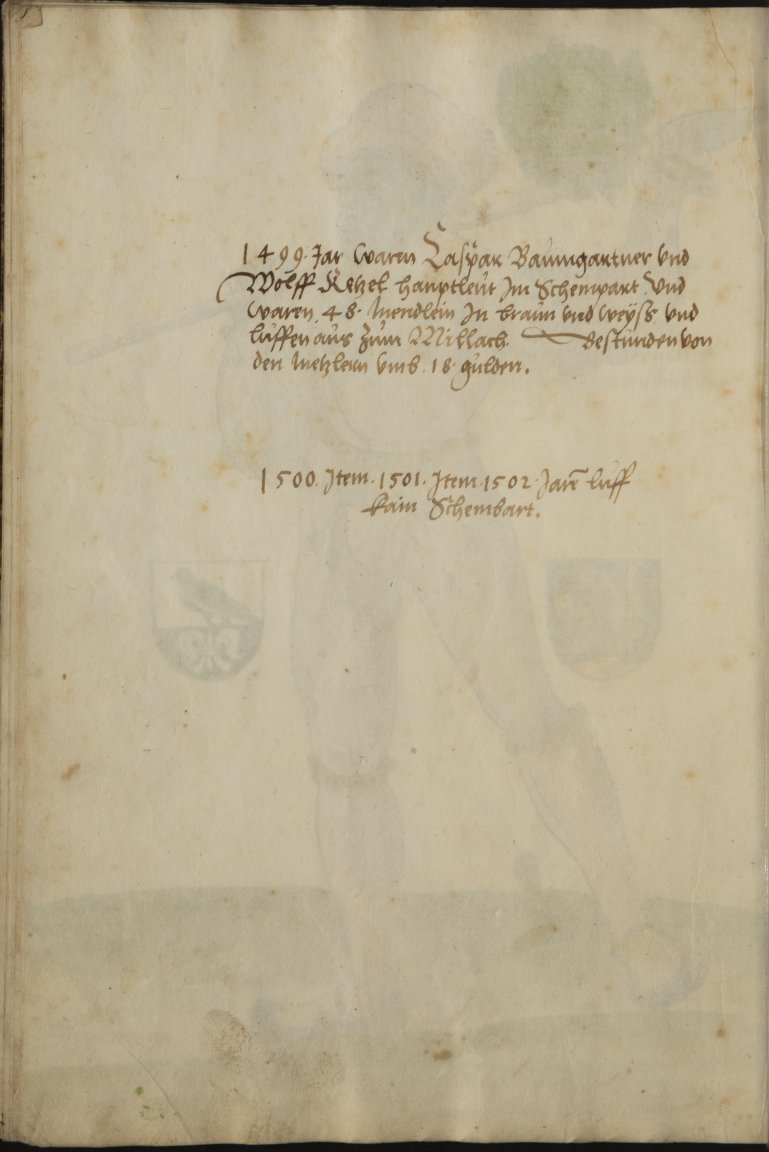 1499. Jar waren Caspar Baumgartner vnd
Wolff Ketzel hauptleut Im Schempart Vnd
waren. 48. mendlein In braun vnd weyss vnd
luffen aus zum Millach bestunden von
den metzlern vmb. 18. gulden.
1500. Item. 1501. Item. 1502. Jarē luff
kain Schembart.